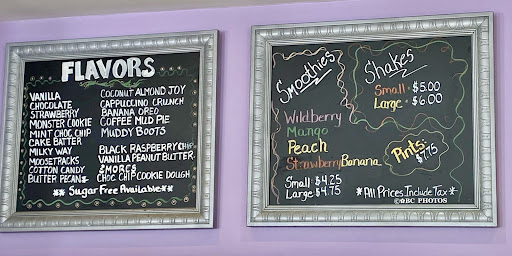 FLAVORS
VANILLA
CHOCOLATE
STRAWBERRY
MONSTER COOKIE
MINT CHOC CHIP
CAKE BATTER
MILKY WAY
MOOSETRACKS
COTTON CANDY
BUTTER PECAN
COCONUT ALMOND JOY
CAPPUCCINO CRUNCH
BANANA OREO
COFFEE MUD PIE
MUDDY BOOTS
BLACK RASPBERRY CHIP
VANILLA PEANUT BUTTER
S'MORES
CHOC CHIP COOKIE DOUGH
** Sugar Free Available **
Smoothies
Wildberry
Mango
Peach
Strawberry Banana
Small: $4.25
Large: $4.75
Shakes
Small: $5.00
Large: $6.00
Pints:
$7.75
*All Prices Include Tax*
©BC PHOTOS